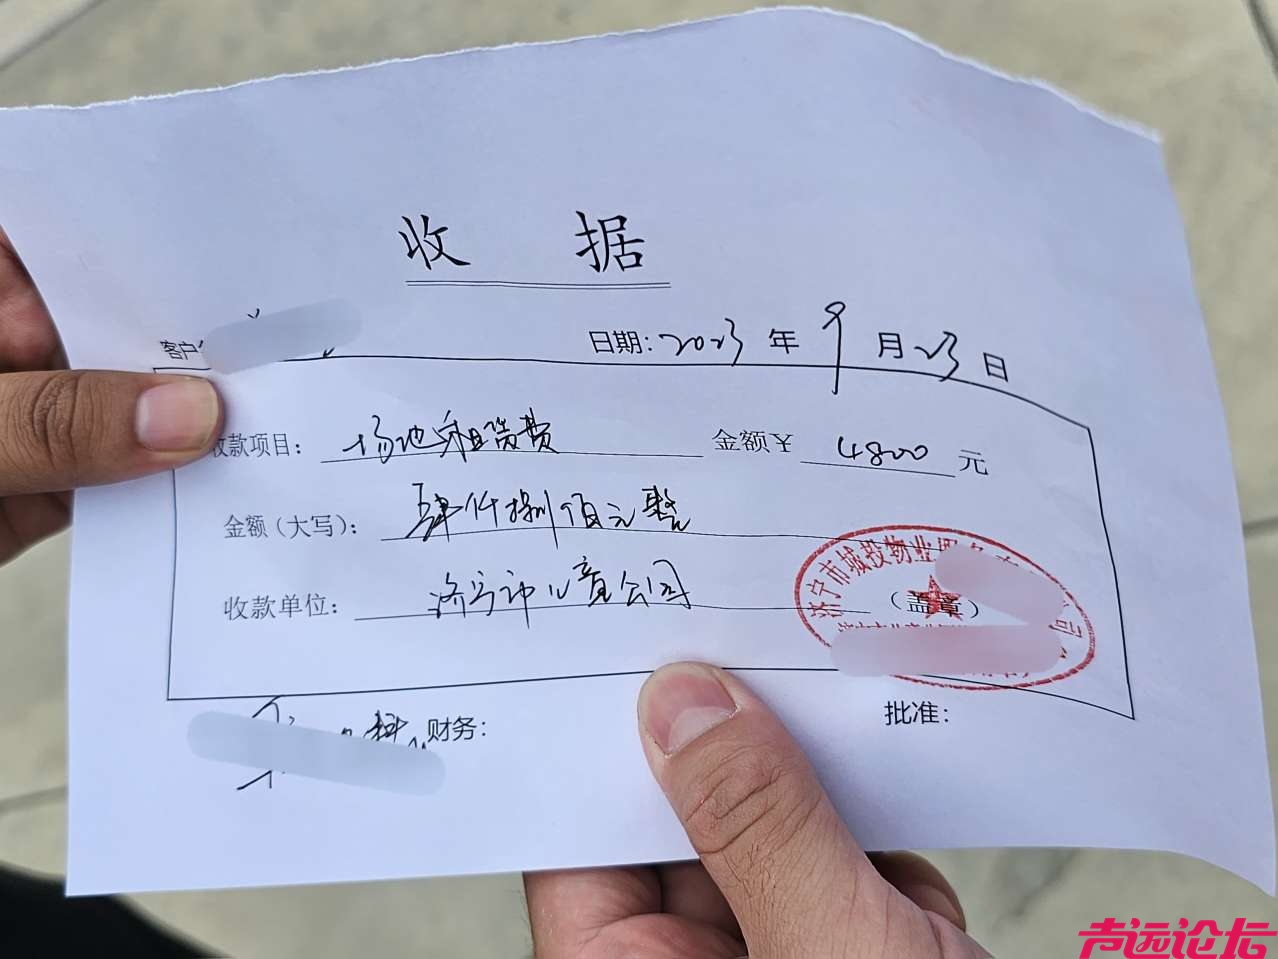 收 据
日期: 2023 年 9 月 23 日
客户
收款项目: 场地租赁费 金额￥ 4800 元
金额(大写): 肆仟捌佰元整
收款单位: 济宁市儿童公园 (盖章)
济宁市城投物业服务 公司
财务: 批准:
声远论坛